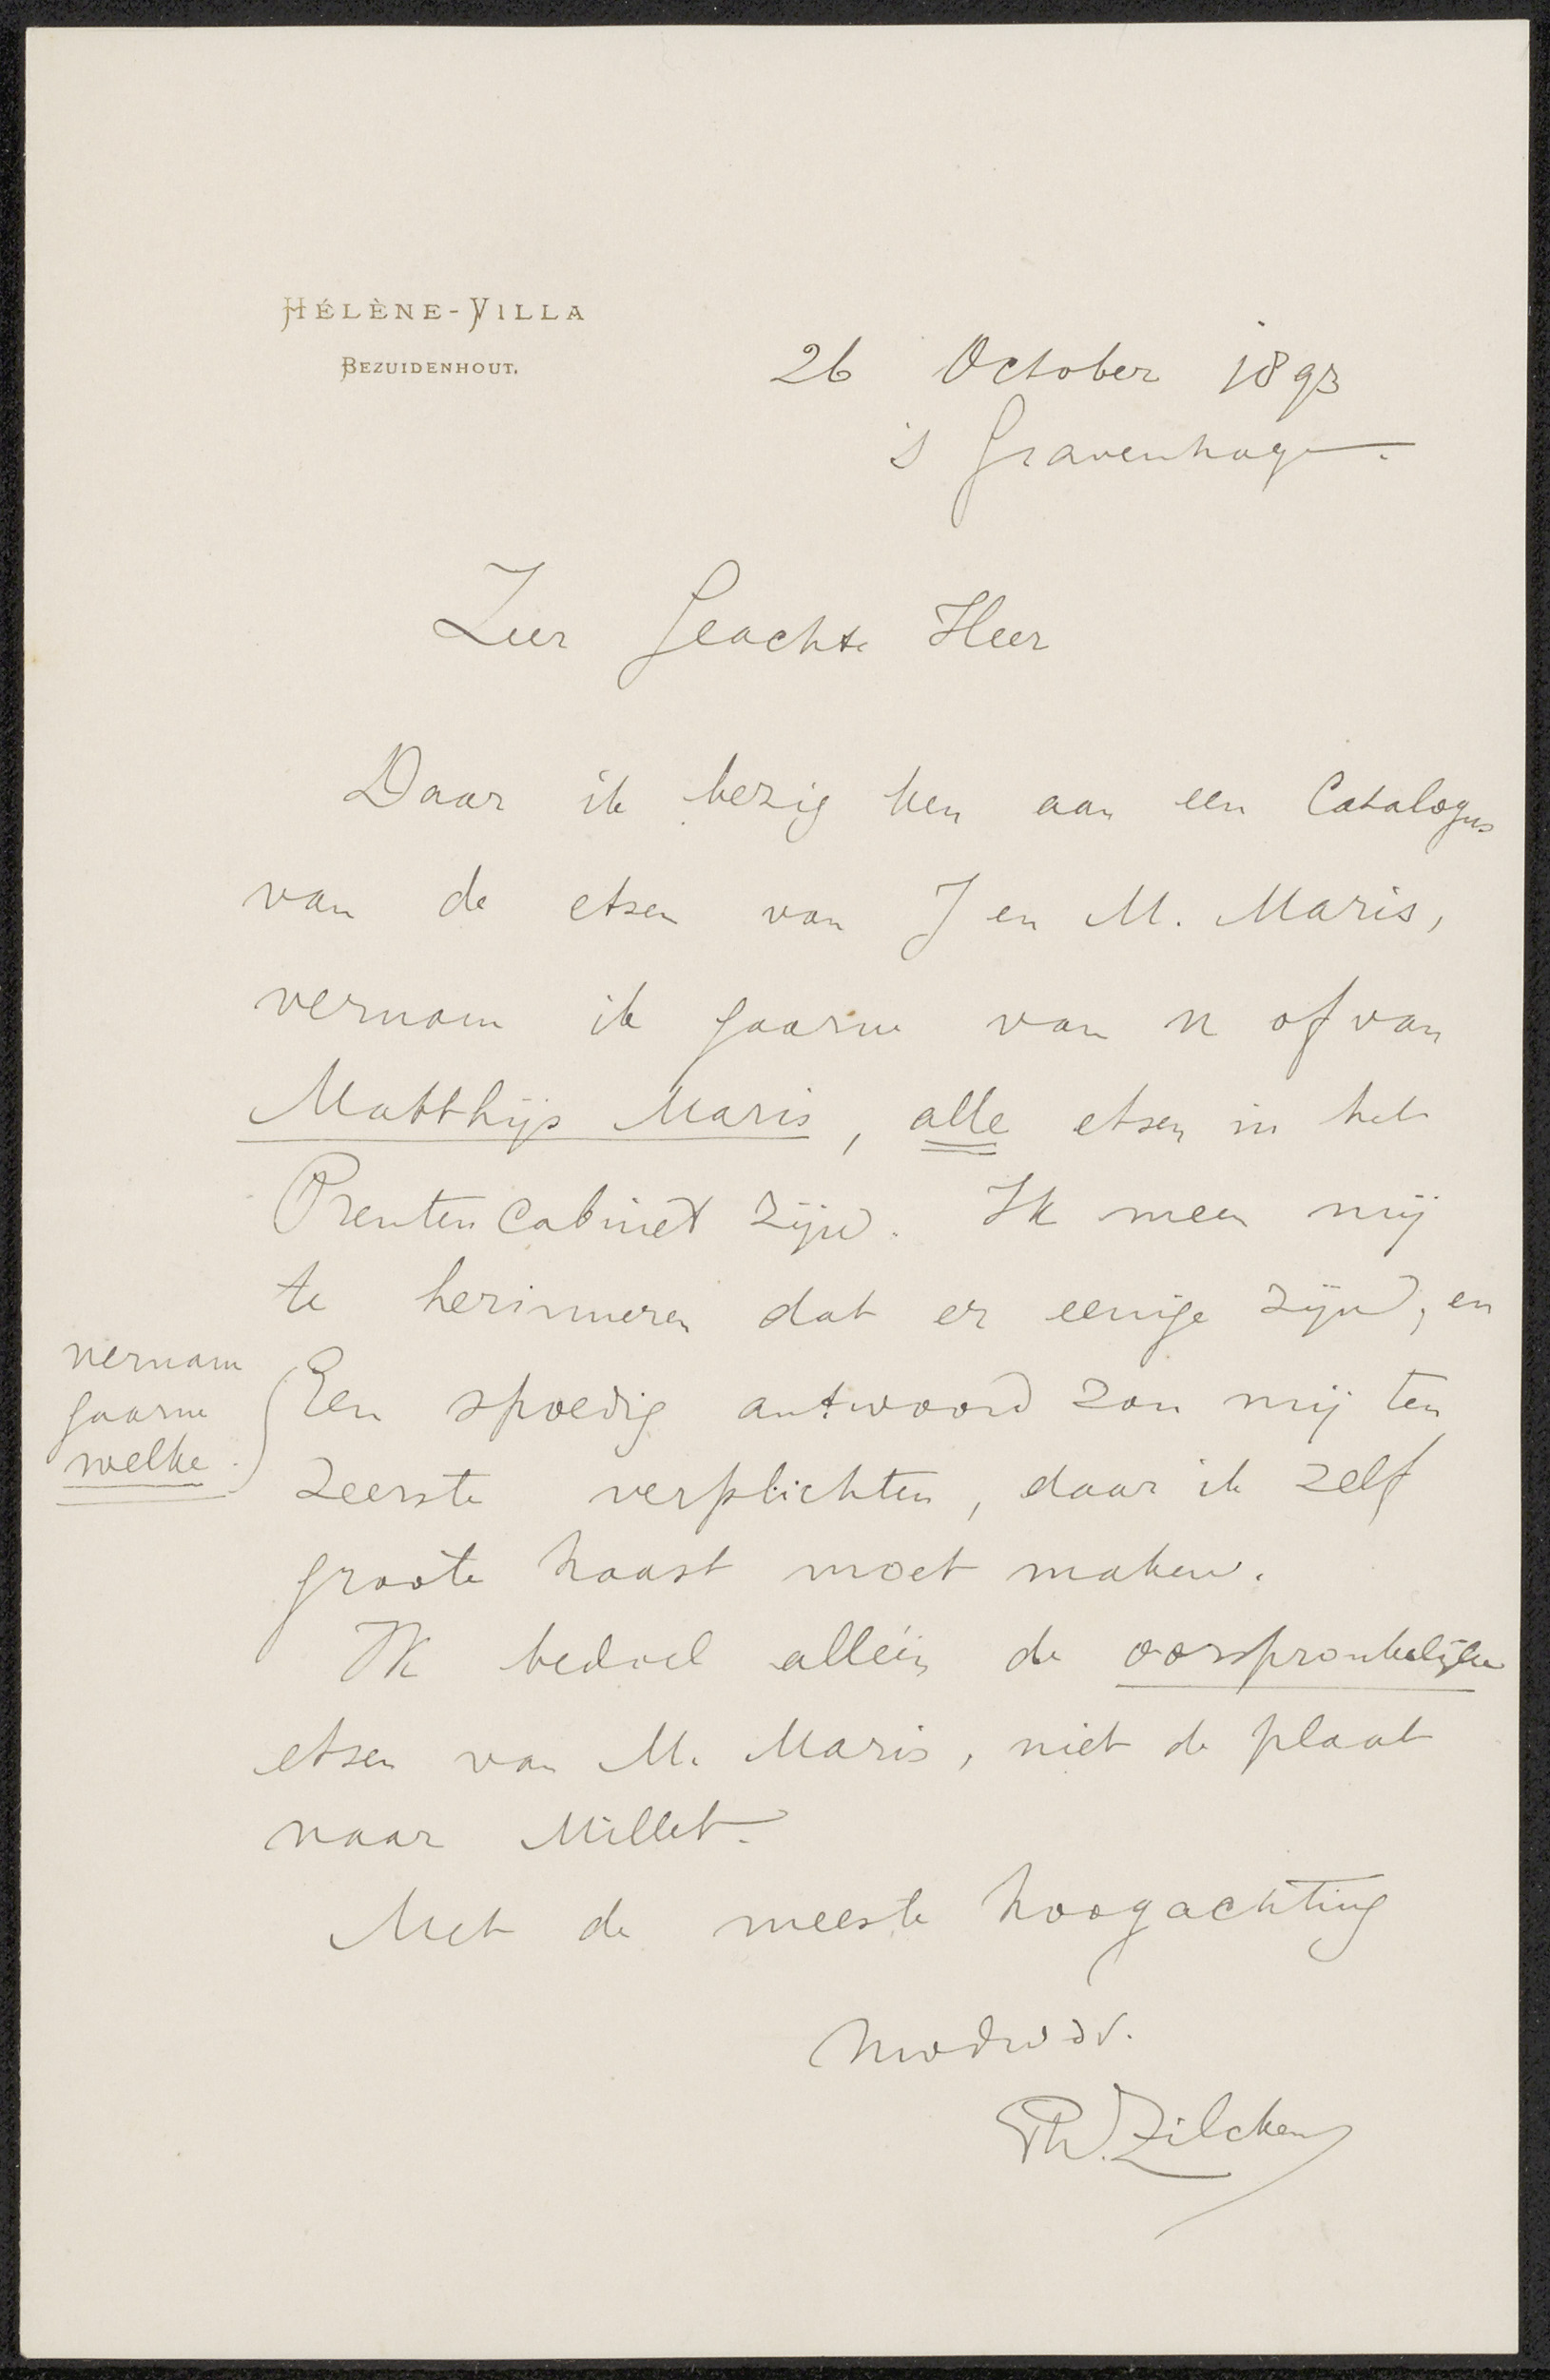 HÉLÈNE-VILLA
BEZUIDENHOUT.
26 October 1893
's Gravenhage.
Zeer Geachte Heer
Daar ik bezig ben aan een Catalogus
van de etsen van J en M. Maris,
vernam ik gaarne van u of van
Matthijs Maris, alle etsen in het
Prentencabinet zijn. Ik meen mij
te herinneren dat er eenige zijn, en
vernam
gaarne
welke.
Een spoedig antwoord zou mij ten
zeerste verplichten, daar ik zelf
groote haast moet maken.
Ik bedoel alléén de oorspronkelijke
etsen van M. Maris, niet de plaat
naar Millet.
Met de meeste hoogachting
Ph. Zilcken